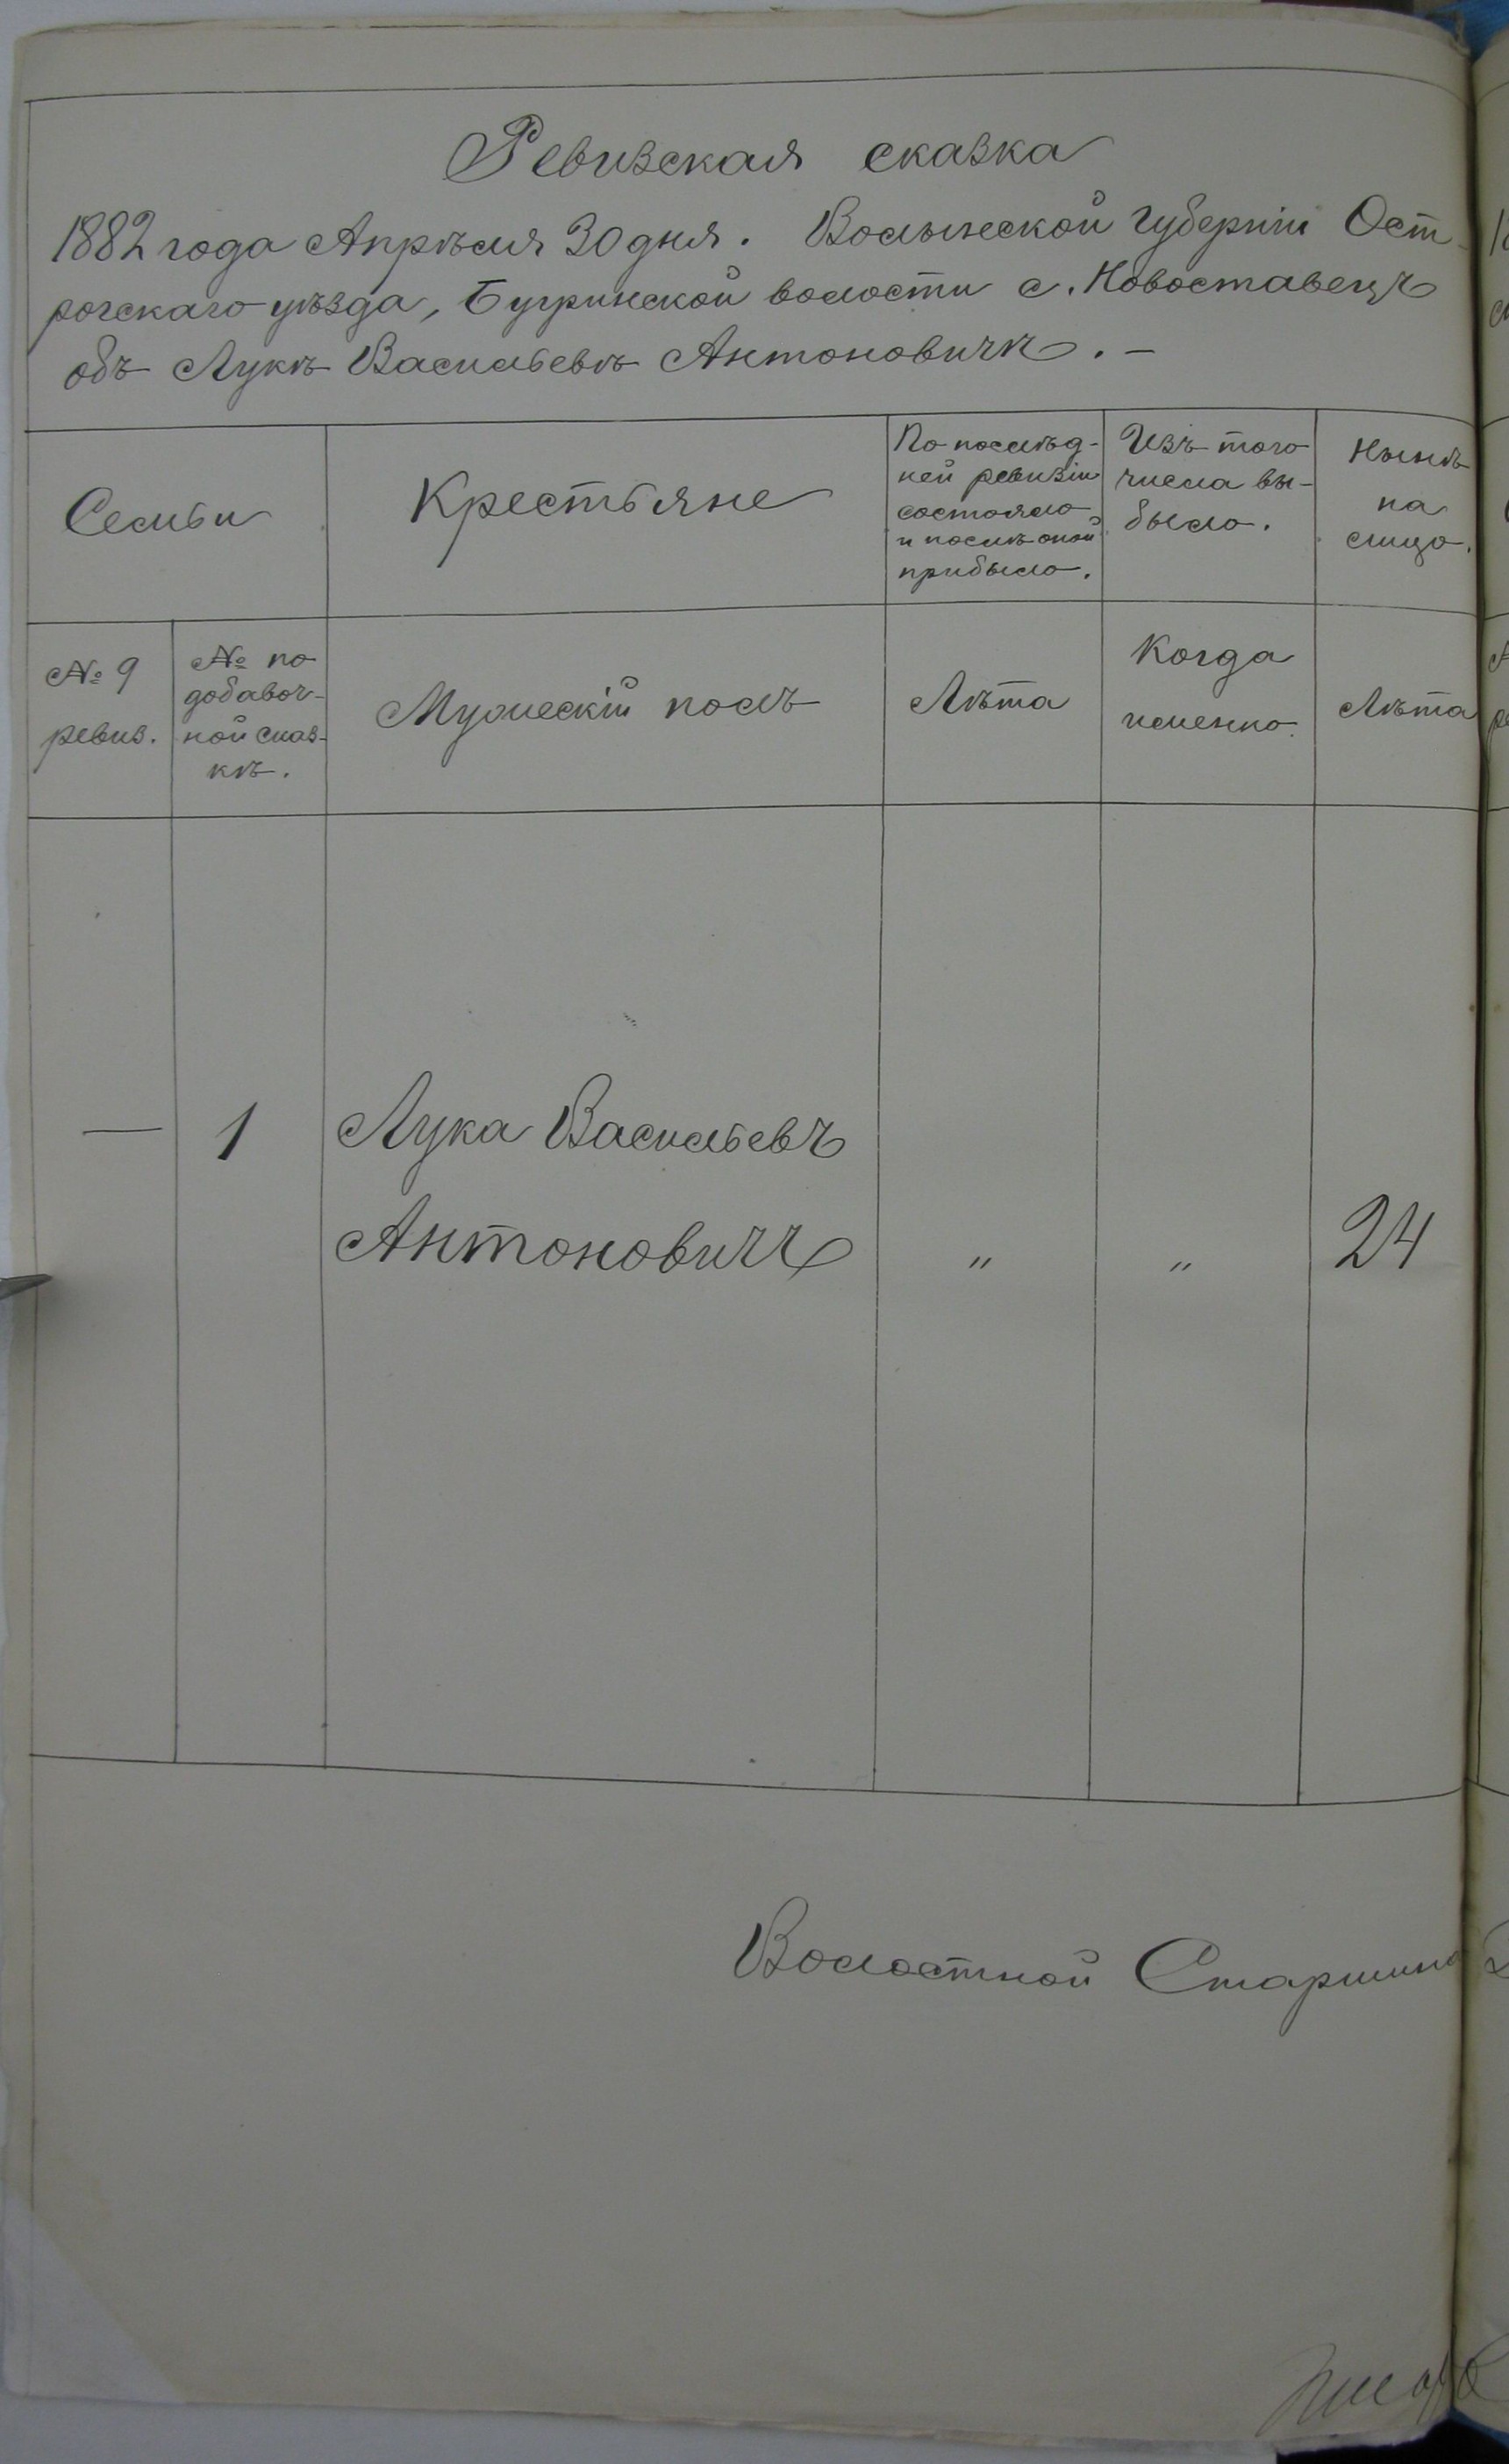 Ревизская сказка
1882 года Апрѣля 30 дня. Волынской Губерніи Ост-
рогскаго уѣзда, Бугринской волости с. Новоставецъ
объ Лукѣ Васильевѣ Антоновичѣ. —
Семьи
Крестьяне
По послѣд-
ней ревизіи
состояло
и послѣ оной
прибыло.
Изъ того
числа вы-
было.
Нынѣ
на
лицо.
№ 9
ревиз.
№ по
добавоч-
ной сказ-
кѣ.
Мужескій полъ
Лѣта
Когда
именно.
Лѣта
— 1 Лука Васильевъ
Антоновичъ " " 24
Волостной Старшина